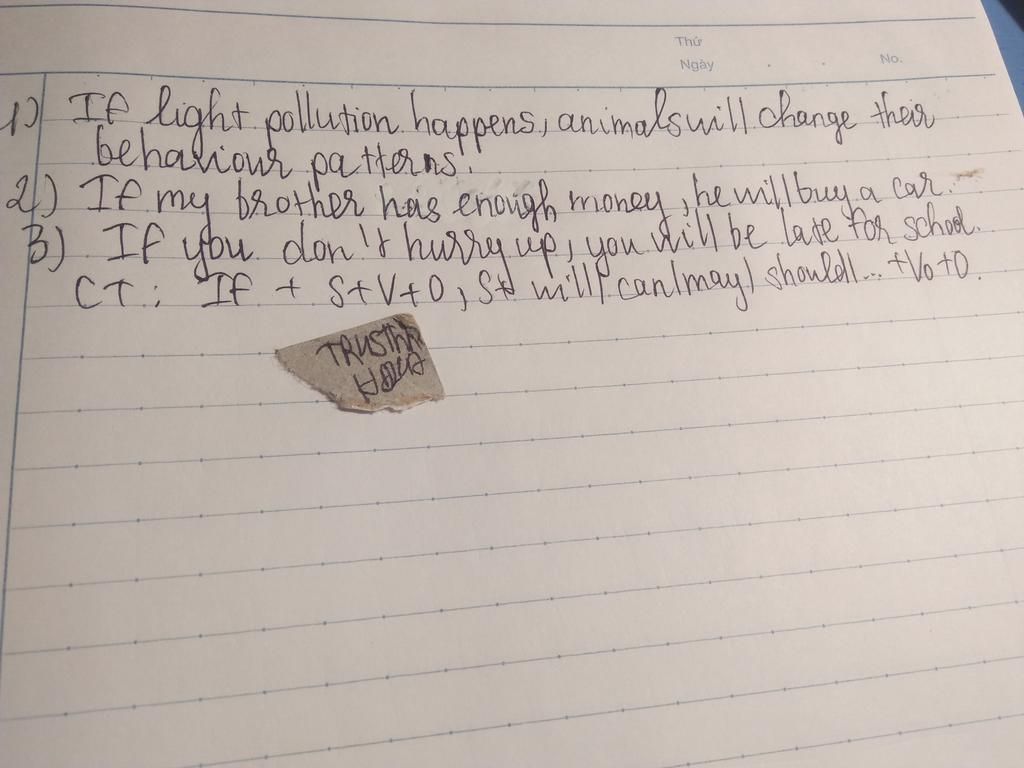 Thứ
Ngày . . No.
1) If light pollution happens, animals will change their
behaviour patterns.
2) If my brother has enough money, he will buy a car.
3) If you don't hurry up, you will be late for school.
CT: If + S+V+O, S+ will/can/may/should/... +Vo+O.